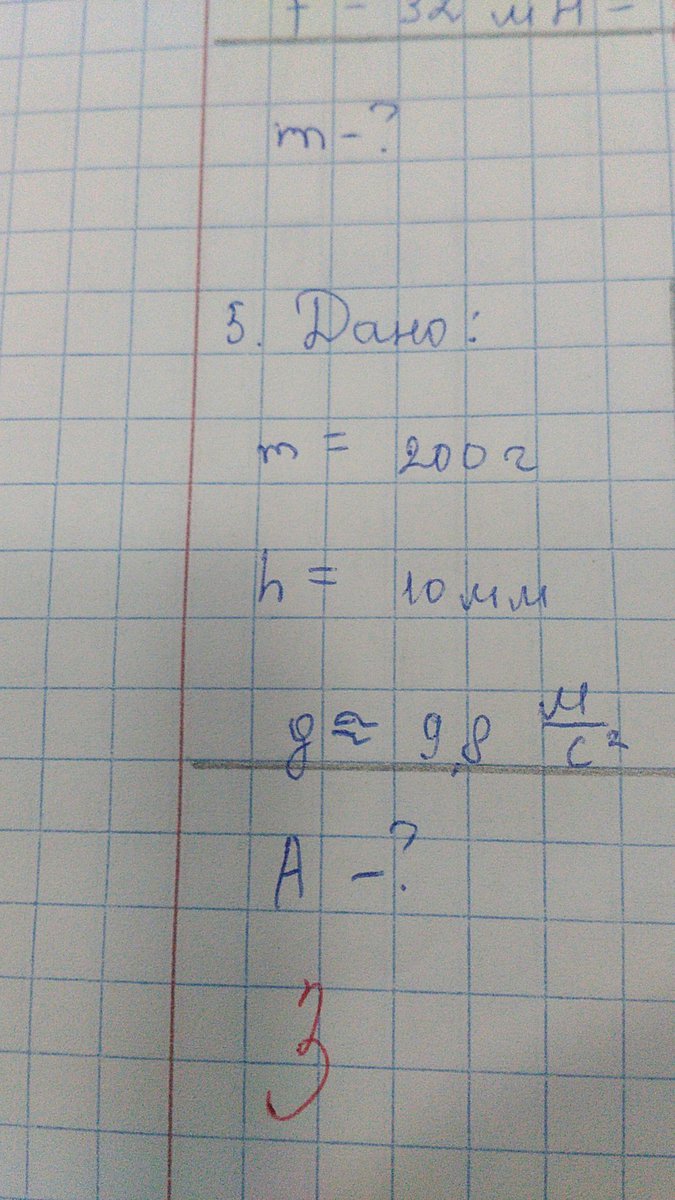 - 32 мН -
m - ?
5. Дано:
m = 200 г
h = 10 мм
g ≈ 9,8 м/с²
A - ?
3